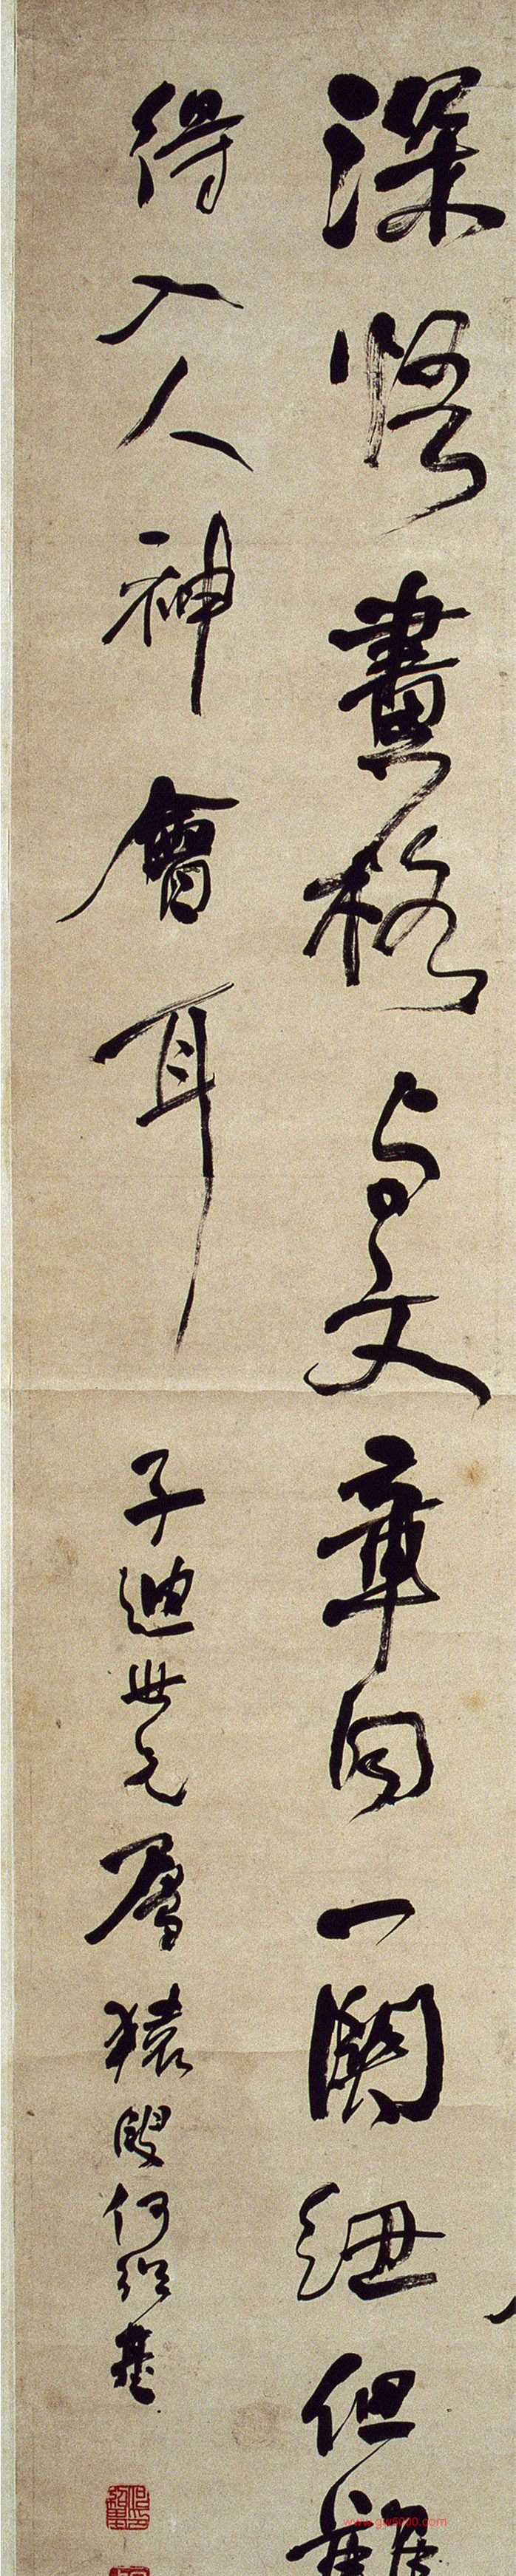 深悟畫格与文章同一關紐但難
得入人神會耳 子迪世兄屬 猨叟何紹基
www.gw5000.com